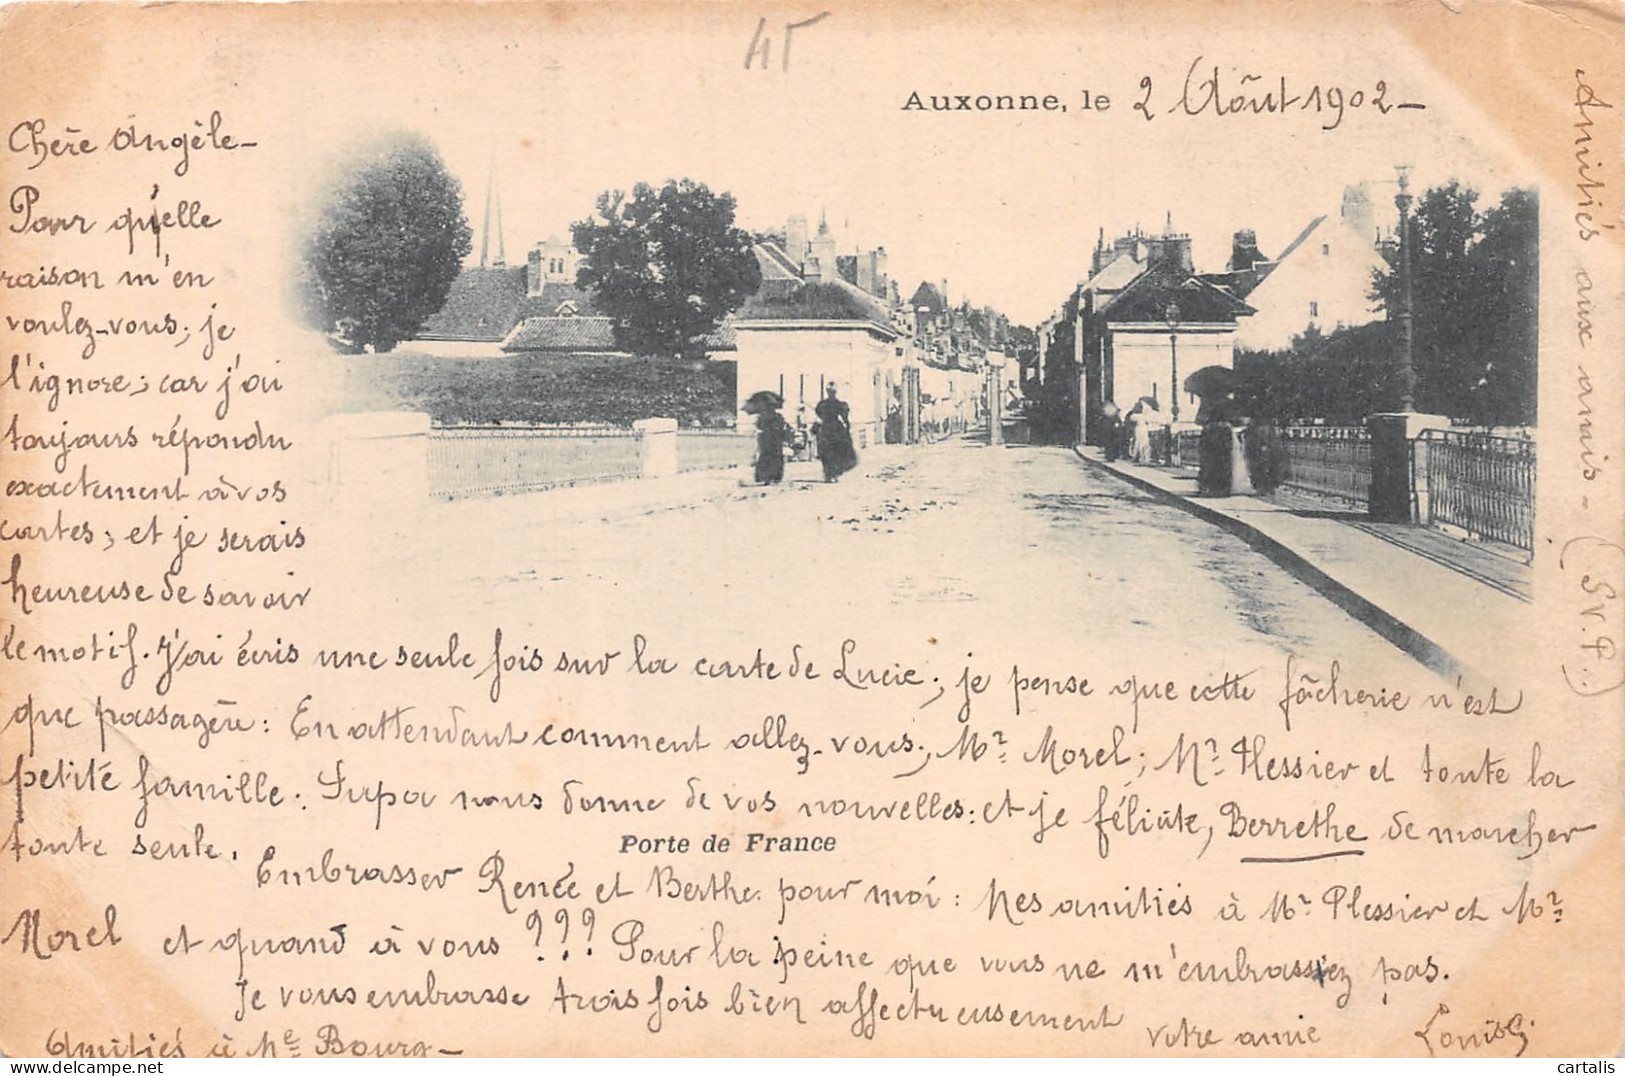 45
Auxonne, le 2 Août 1902_
Chère Angèle_
Pour quelle
raison m'en
voulez-vous; je
l'ignore; car j'ai
toujours répondu
exactement à vos
cartes; et je serais
heureuse de savoir
le motif. J'ai écris une seule fois sur la carte de Lucie; je pense que cette fâcherie n'est
que passagère: En attendant comment allez-vous; Mr. Morel; Mr. Plessier et toute la
petite famille. Papa nous donne de vos nouvelles: et je félicite, Berrethe de marcher
toute seule.
Porte de France
Embrasser Renée et Berthe pour moi: Mes amitiés à Mr. Plessier et Mr.
Morel et quand à vous ??? Pour la peine que vous ne m'embrassiez pas.
Je vous embrasse trois fois bien affectueusement
votre amie Louise
Amitiés à Me Bourg_
Amitiés aux amis- (S.V.P..)
cartalis